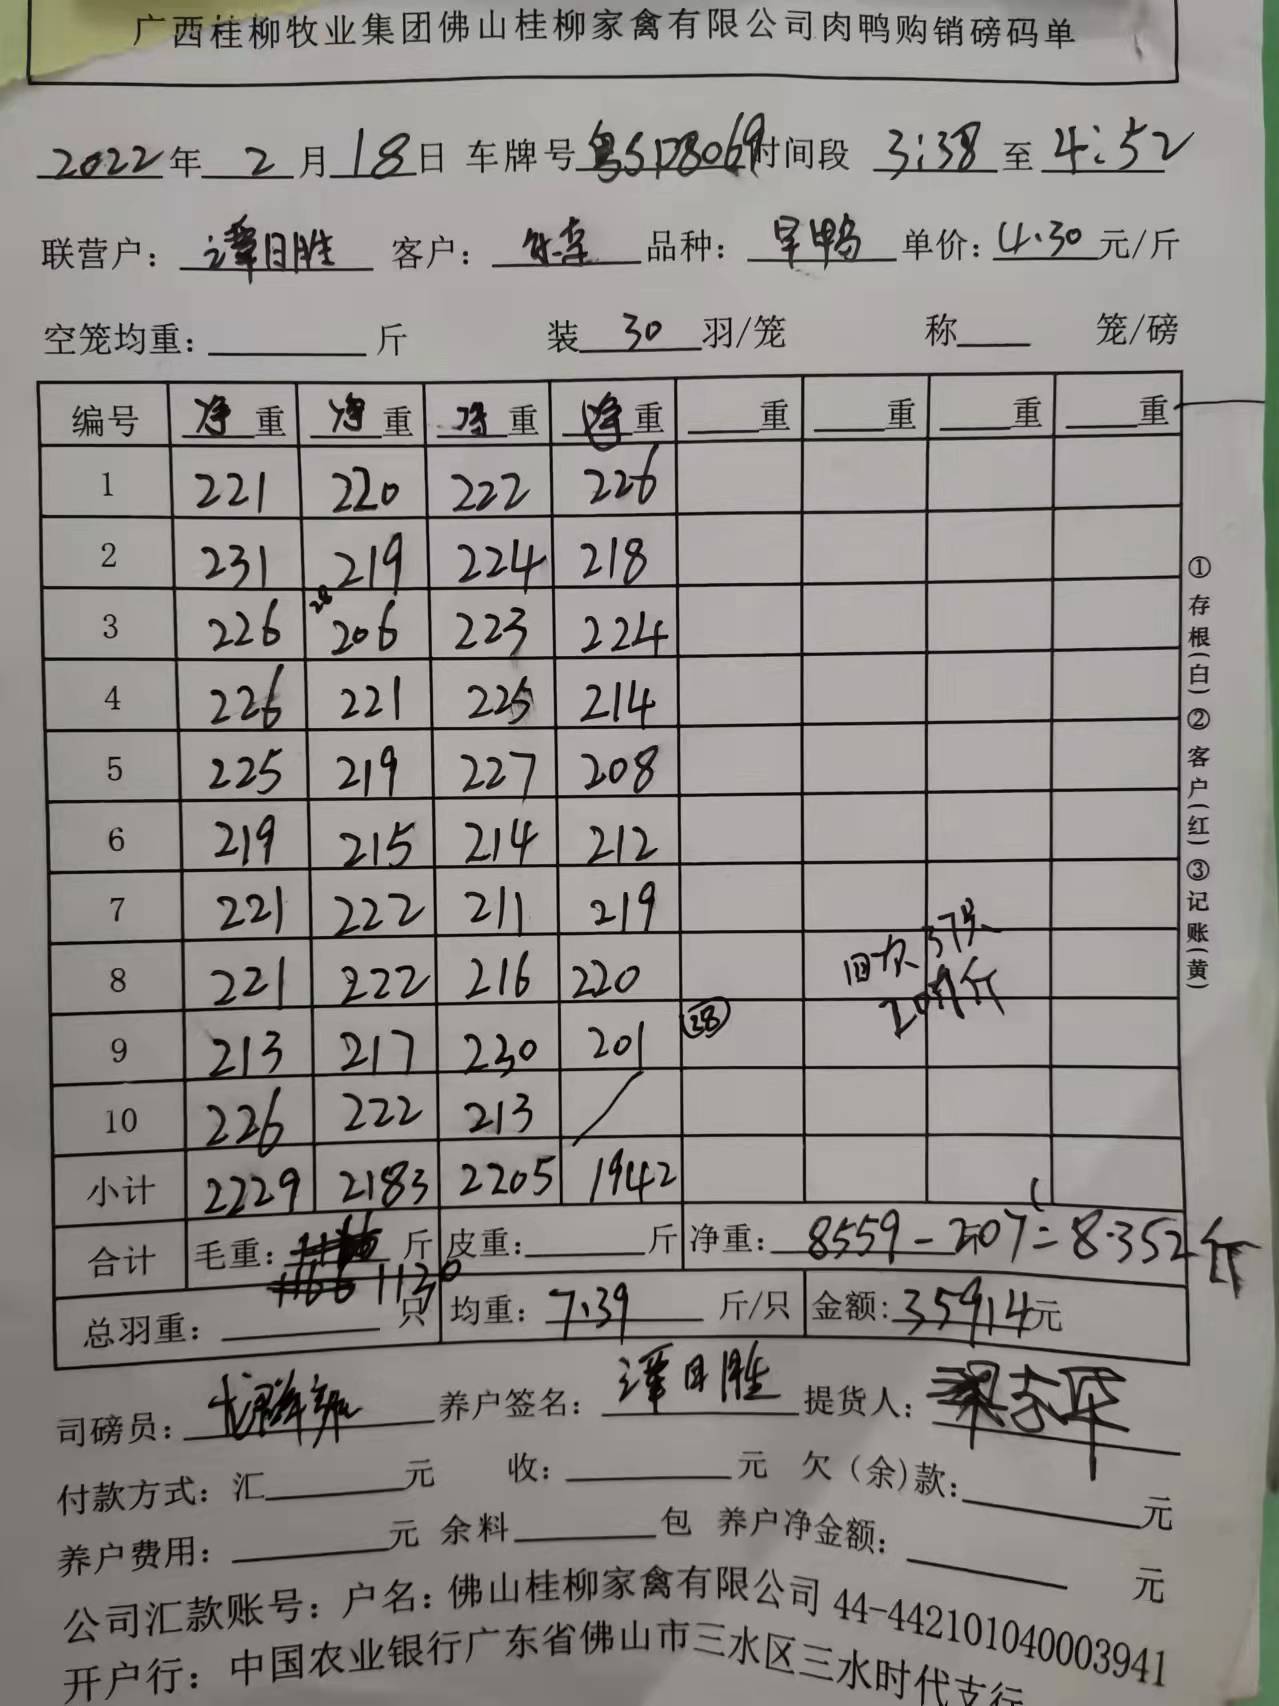 广西桂柳牧业集团佛山桂柳家禽有限公司肉鸭购销磅码单
2022年 2 月 18 日 车牌号 粤S123069 时间段 3:38 至 4:52
联营户: 谭日胜 客户: 品种: 旱鸭 单价: 4.30 元/斤
空笼均重: 斤 装 30 羽/笼 称 笼/磅
编号 净重 净重 净重 净重 重 重 重 重
1 221 220 222 226
2 231 219 224 218
3 226 28 206 223 224
4 226 221 225 214
5 225 219 227 208
6 219 215 214 212
7 221 222 211 219
8 221 222 216 220
回欠 37只
207斤
9 213 217 230 201 28
10 226 222 213 /
小计 2229 2183 2205 1942
合计 毛重: 斤 皮重: 斤 净重: 8559-207=8352斤
总羽重: 1130 只 均重: 7.39 斤/只 金额: 35914元
司磅员: 养户签名: 谭日胜 提货人:
付款方式: 汇 元 收: 元 欠(余)款: 元
养户费用: 元 余料 包 养户净金额: 元
公司汇款账号: 户名: 佛山桂柳家禽有限公司 44-442101040003941
开户行: 中国农业银行广东省佛山市三水区三水时代支行
①存根(白)②客户(红)③记账(黄)